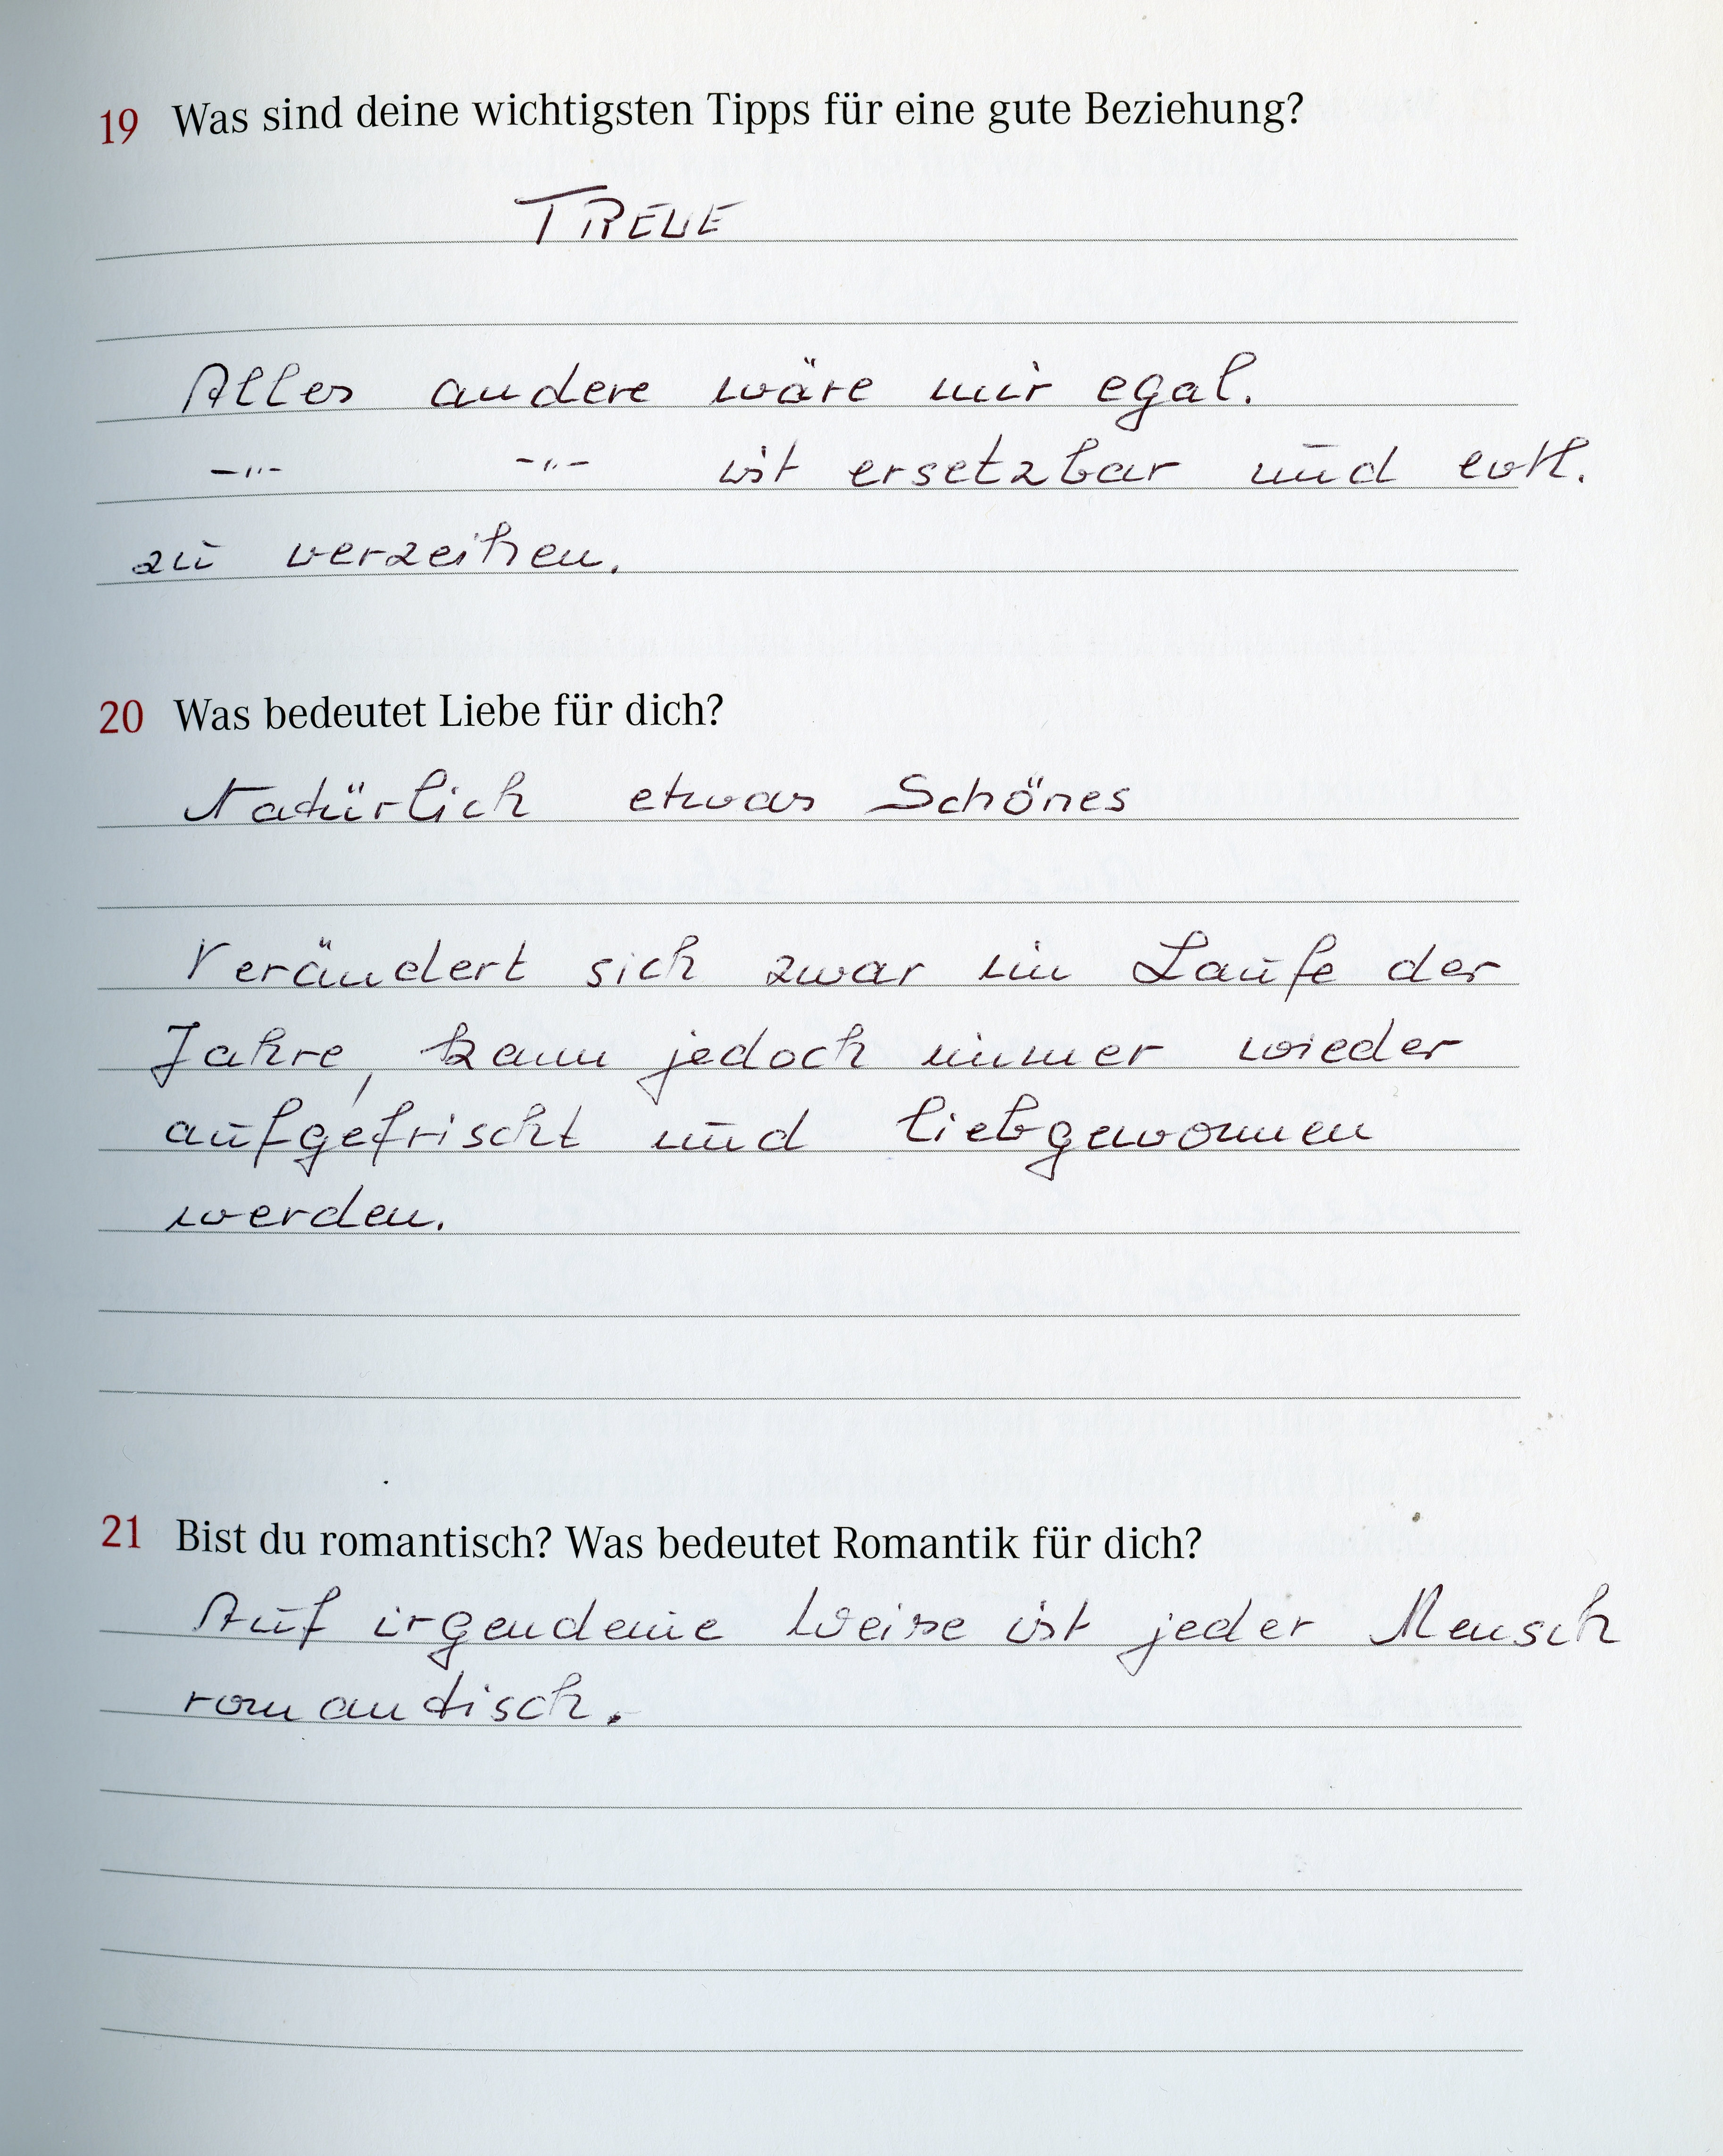 19 Was sind deine wichtigsten Tipps für eine gute Beziehung?
TREUE
Alles andere wäre mir egal.
-"- -"- ist ersetzbar und evtl.
zu verzeihen.
20 Was bedeutet Liebe für dich?
Natürlich etwas Schönes
Verändert sich zwar im Laufe der
Jahre, kann jedoch immer wieder
aufgefrischt und liebgewonnen
werden.
21 Bist du romantisch? Was bedeutet Romantik für dich?
Auf irgendeine Weise ist jeder Mensch
romantisch.